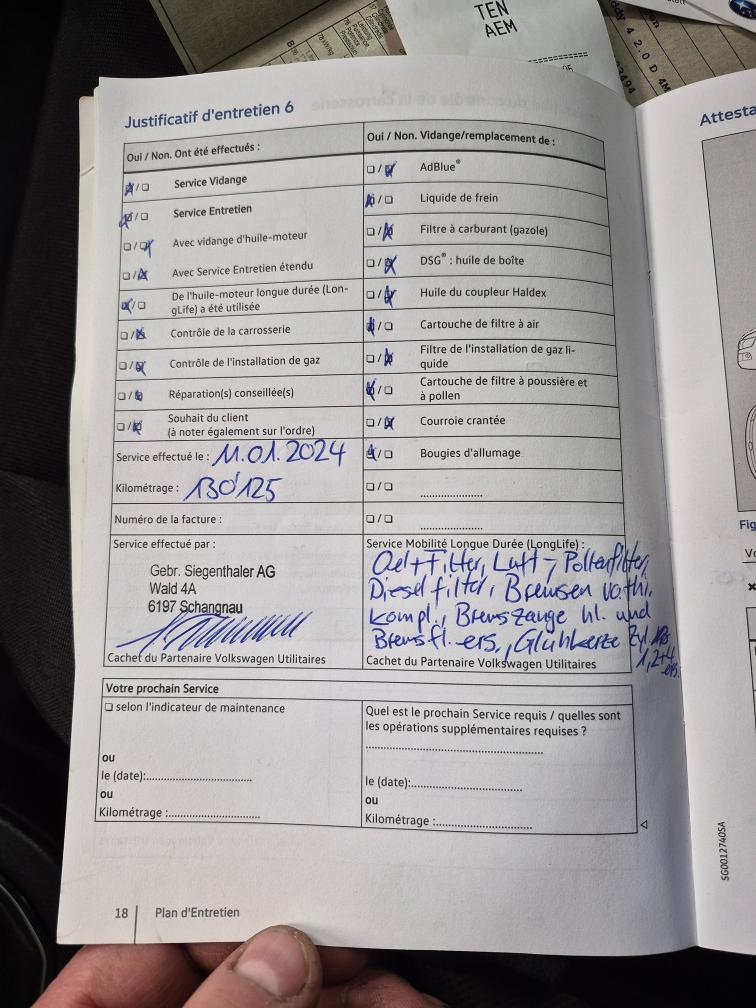 TEN
AEM
ddy 4 2.0 D 4M
Justificatif d'entretien 6
Oui / Non. Ont été effectués :
Service Vidange
Service Entretien
Avec vidange d'huile-moteur
Avec Service Entretien étendu
De l'huile-moteur longue durée (Lon-
gLife) a été utilisée
Contrôle de la carrosserie
Contrôle de l'installation de gaz
Réparation(s) conseillée(s)
Souhait du client
(à noter également sur l'ordre)
Service effectué le : 11.01.2024
Kilométrage : 130'125
Numéro de la facture :
Service effectué par :
Gebr. Siegenthaler AG
Wald 4A
6197 Schangnau
Cachet du Partenaire Volkswagen Utilitaires
Oui / Non. Vidange/remplacement de :
AdBlue®
Liquide de frein
Filtre à carburant (gazole)
DSG® : huile de boîte
Huile du coupleur Haldex
Cartouche de filtre à air
Filtre de l'installation de gaz li-
quide
Cartouche de filtre à poussière et
à pollen
Courroie crantée
Bougies d'allumage
Service Mobilité Longue Durée (LongLife) :
Oel + Filter, Luft-, Pollenfilter,
Dieselfilter, Bremsen vo. + hl.
kompl., Bremszange hl. und
Bremsfl. ers., Glühkerze Zyl.
1,2+4
ers.
Cachet du Partenaire Volkswagen Utilitaires
Votre prochain Service
selon l'indicateur de maintenance
ou
le (date):
ou
Kilométrage :
Quel est le prochain Service requis / quelles sont
les opérations supplémentaires requises ?
le (date):
ou
Kilométrage :
18 Plan d'Entretien
Attesta
Fig
SG0012740SA